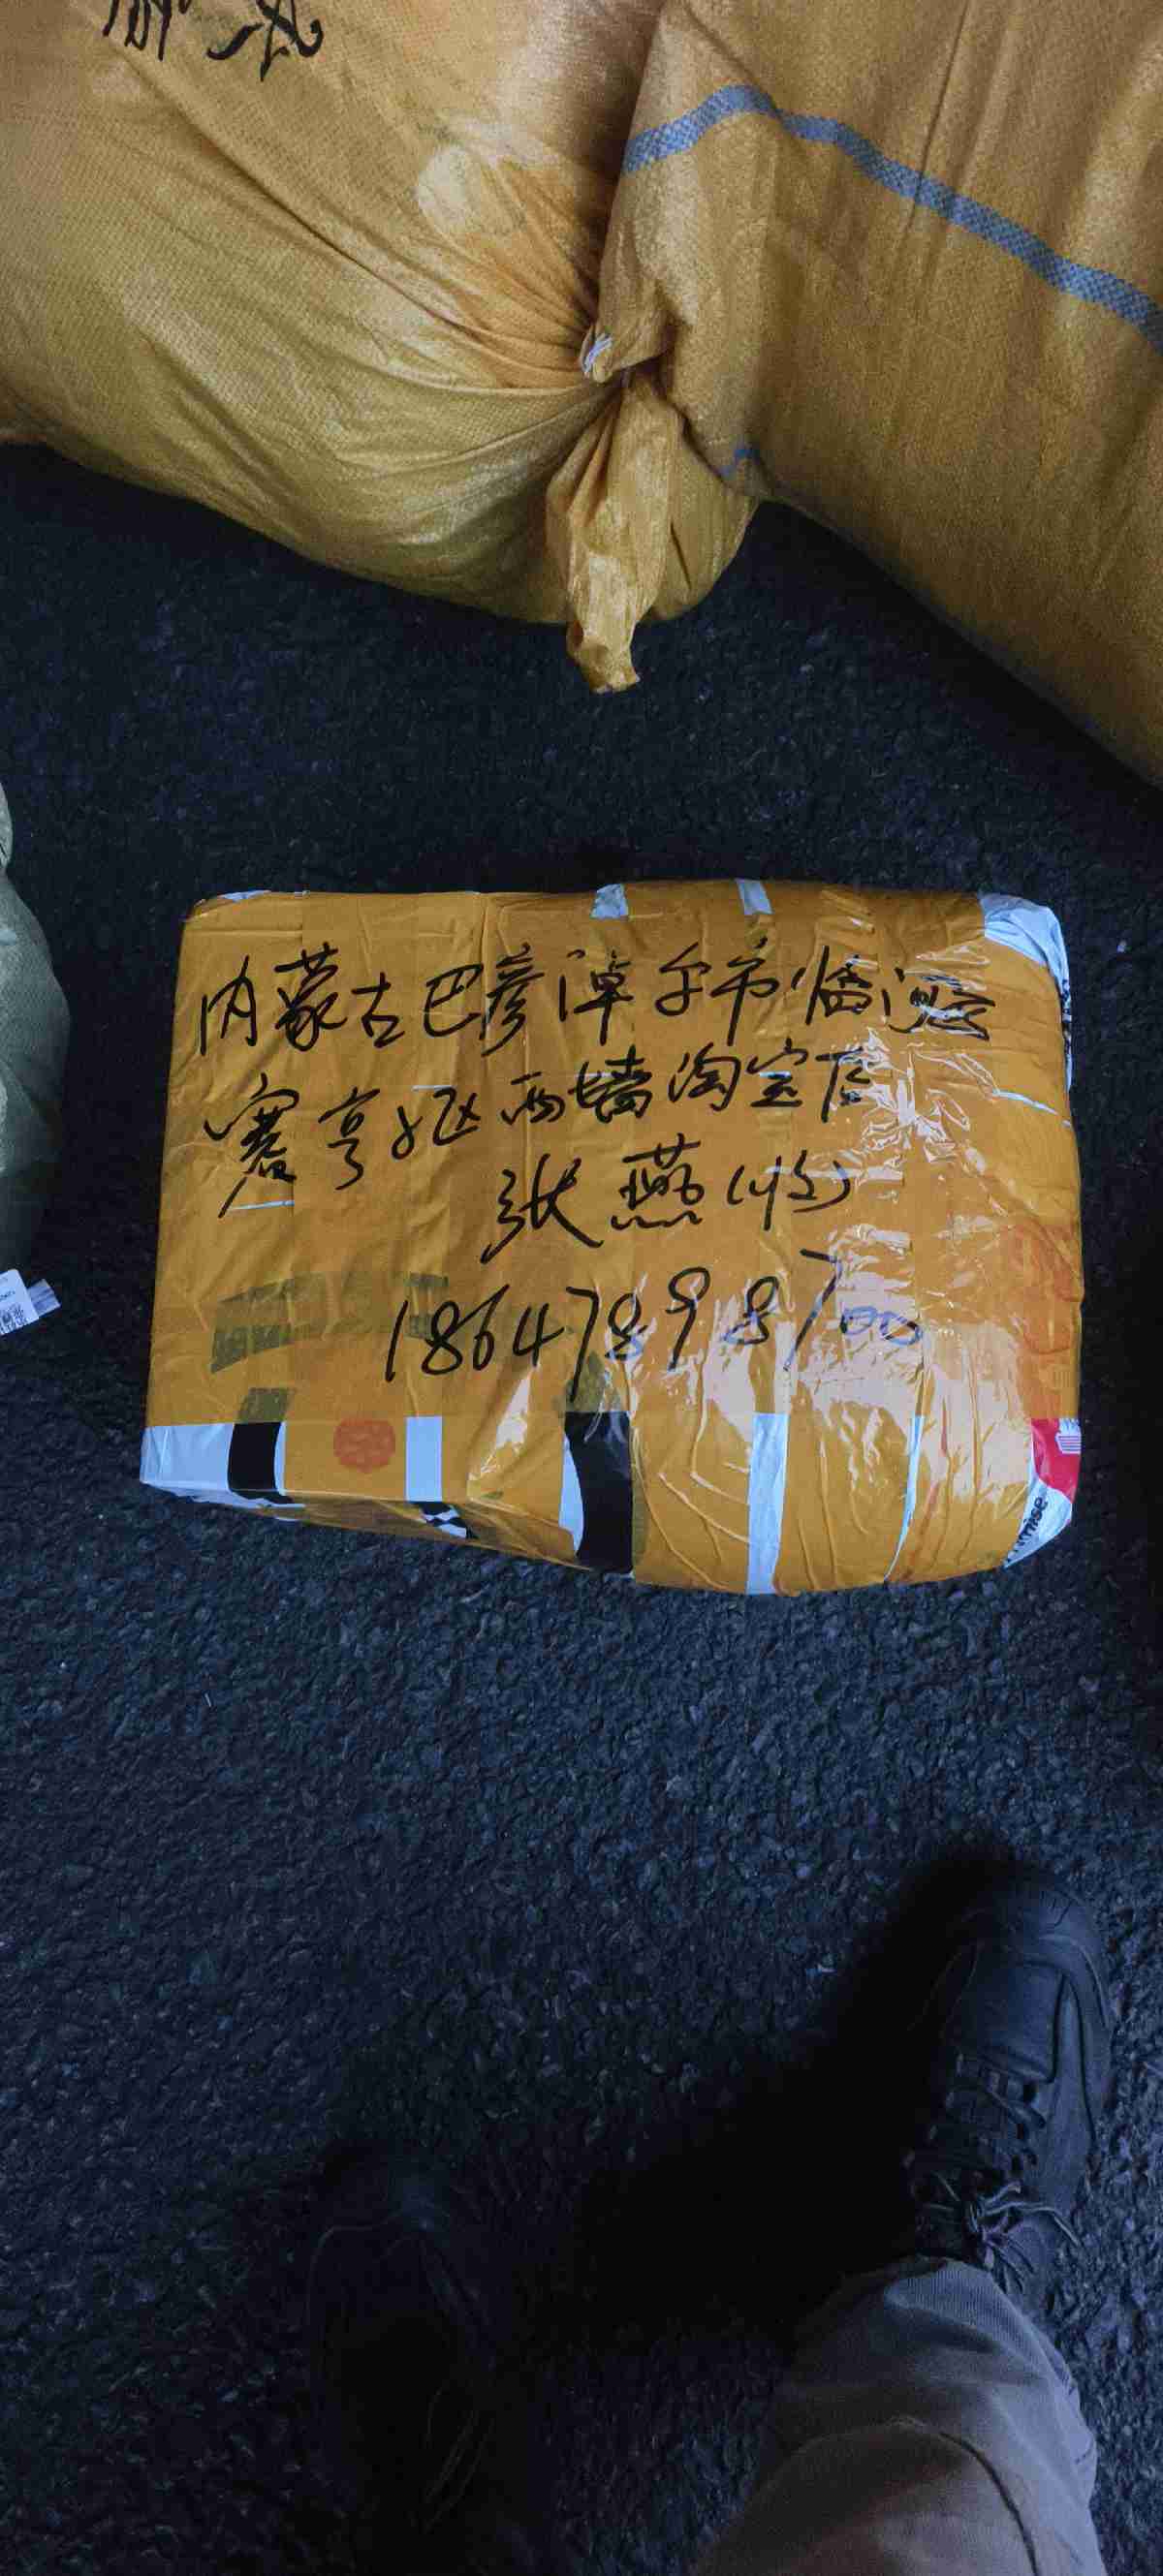 内蒙古巴彦淖尔市临河区
赛亨小区西墙淘宝店
张燕(收)
18647898700